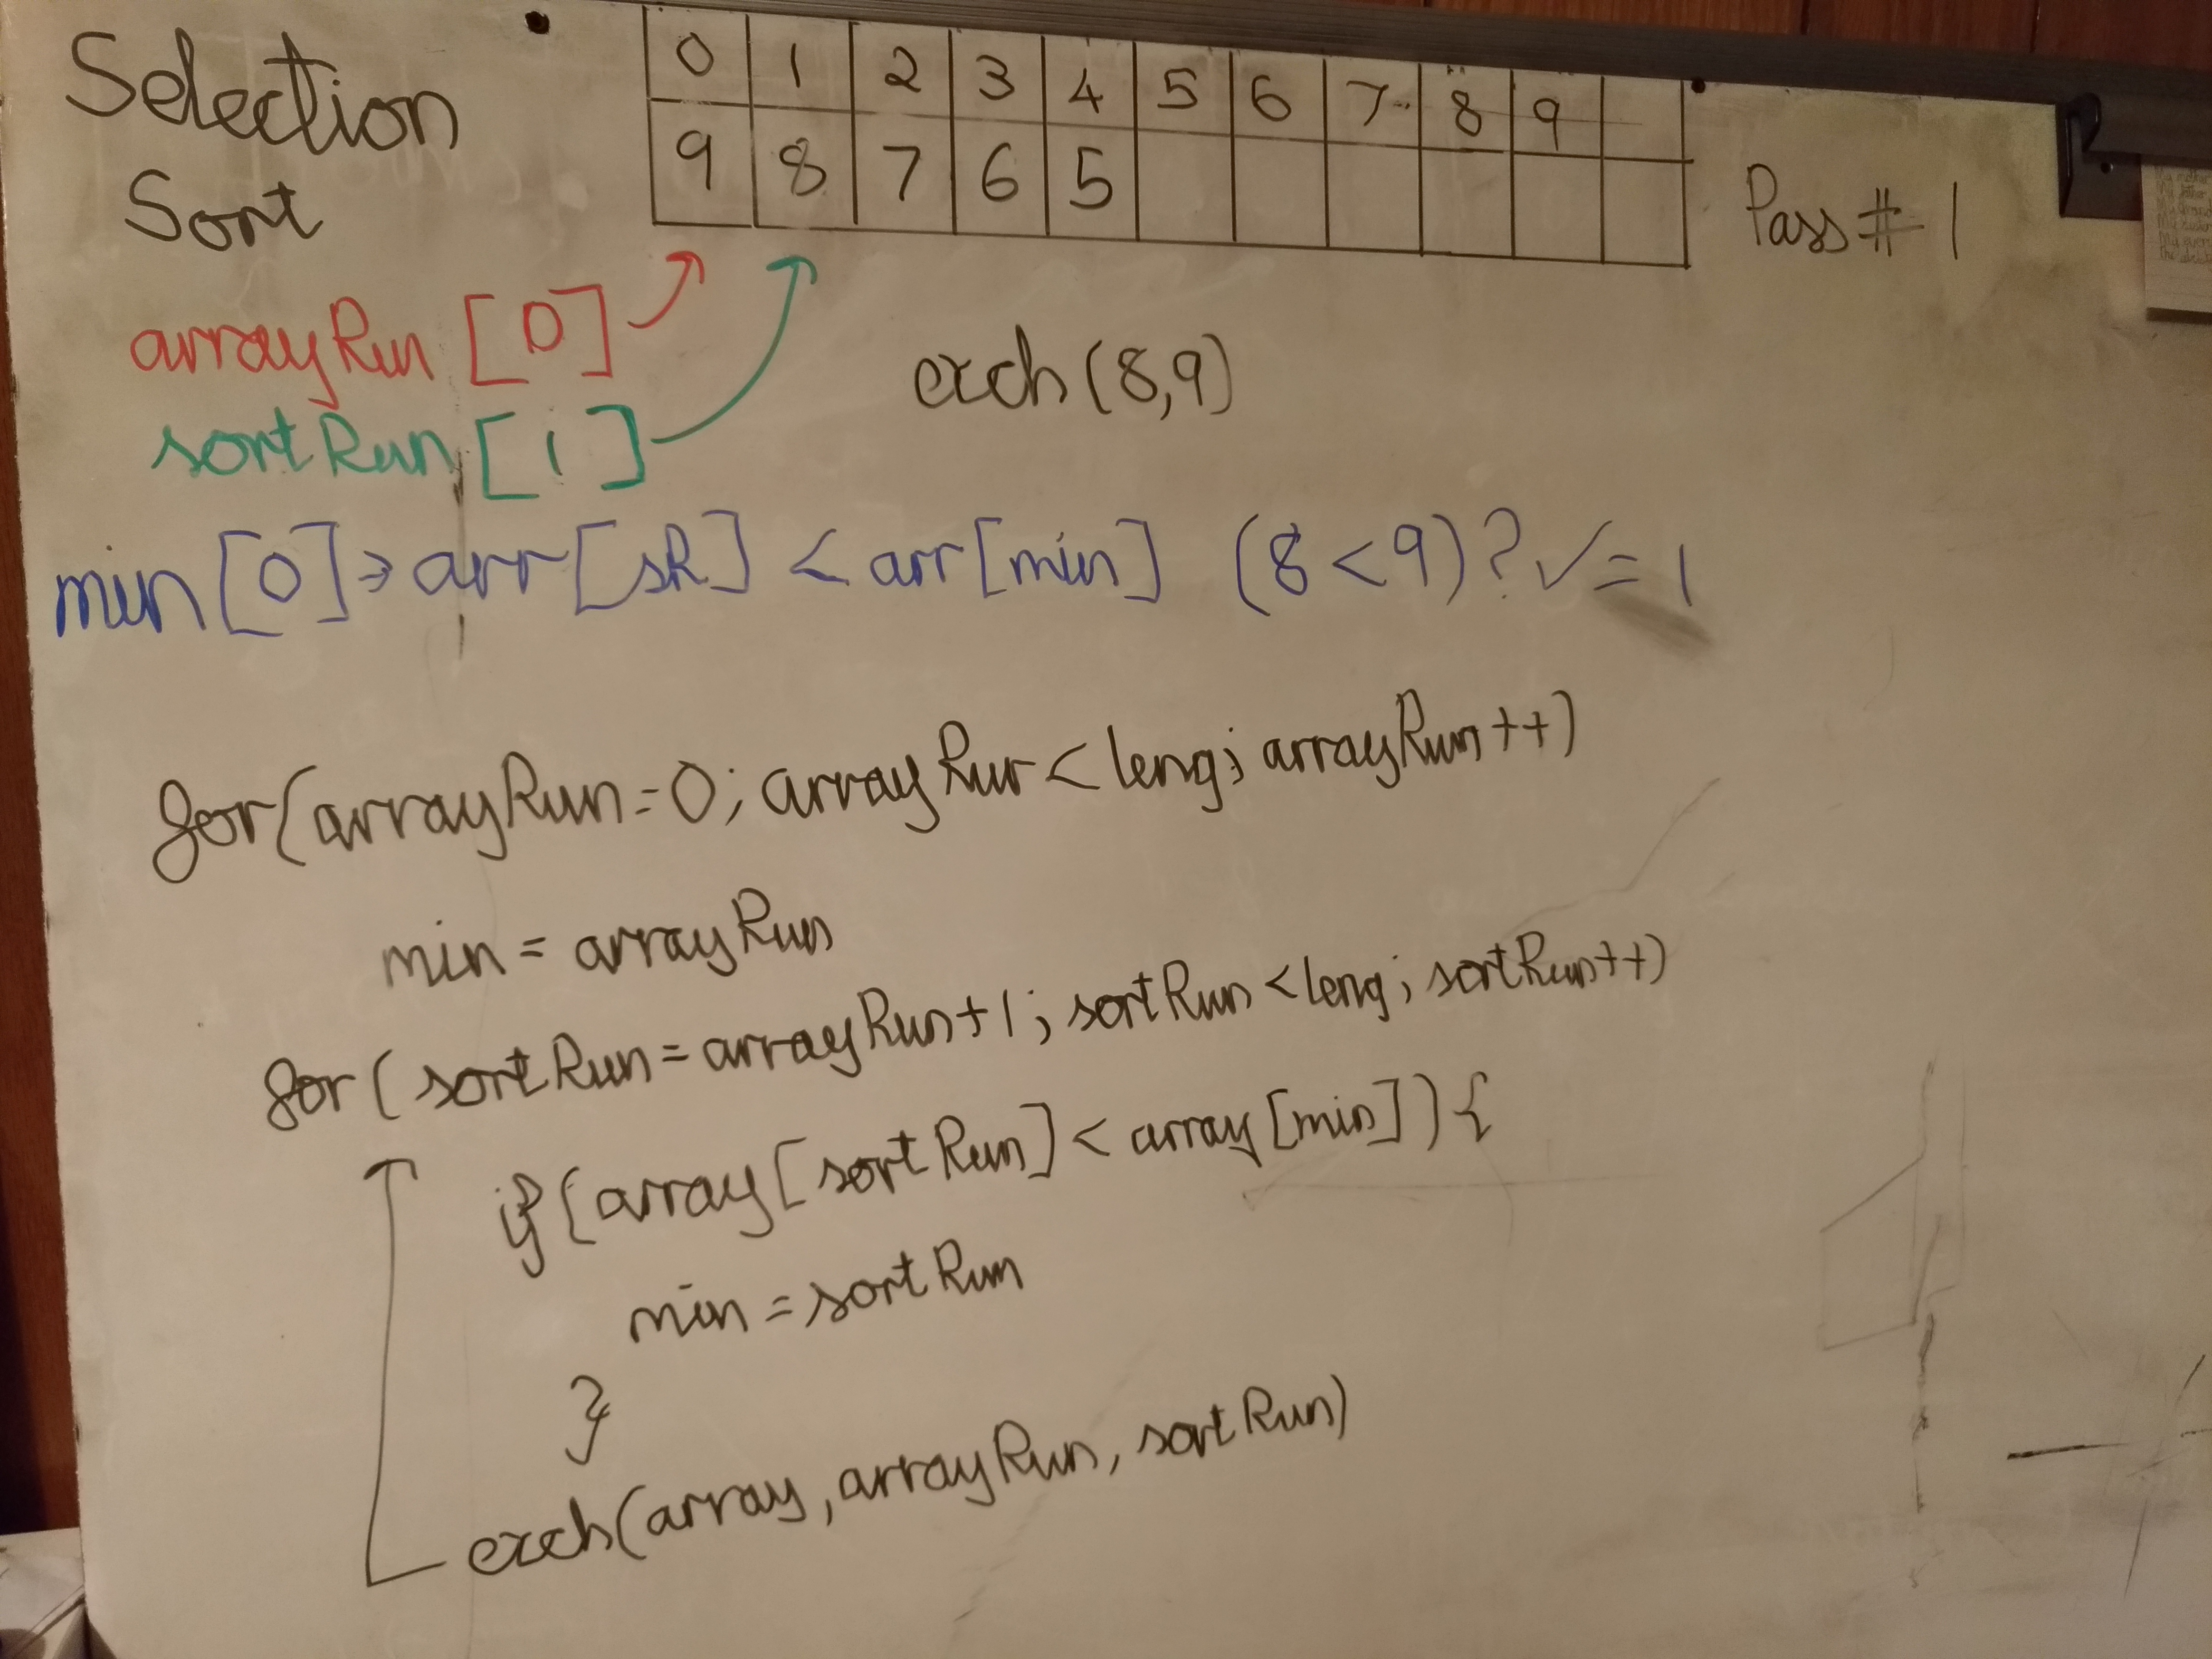 Selection
Sort
0 1 2 3 4 5 6 7 8 9
9 8 7 6 5
Pass # 1
arrayRun [0]
sortRun [1]
exch(8,9)
min[0]→arr[sR] < arr[min] (8<9)?✓=1
for(arrayRun=0; arrayRur<leng; arrayRun++)
min = arrayRun
for( sortRun=arrayRun+1; sortRun<leng; sortRun++)
if(array[sortRun]<array[min]){
min=sortRun
}
exch(array,arrayRun, sortRun)